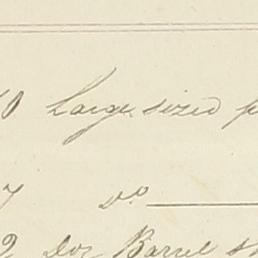 0 Large sized
7 Do
2 Doz Barrel